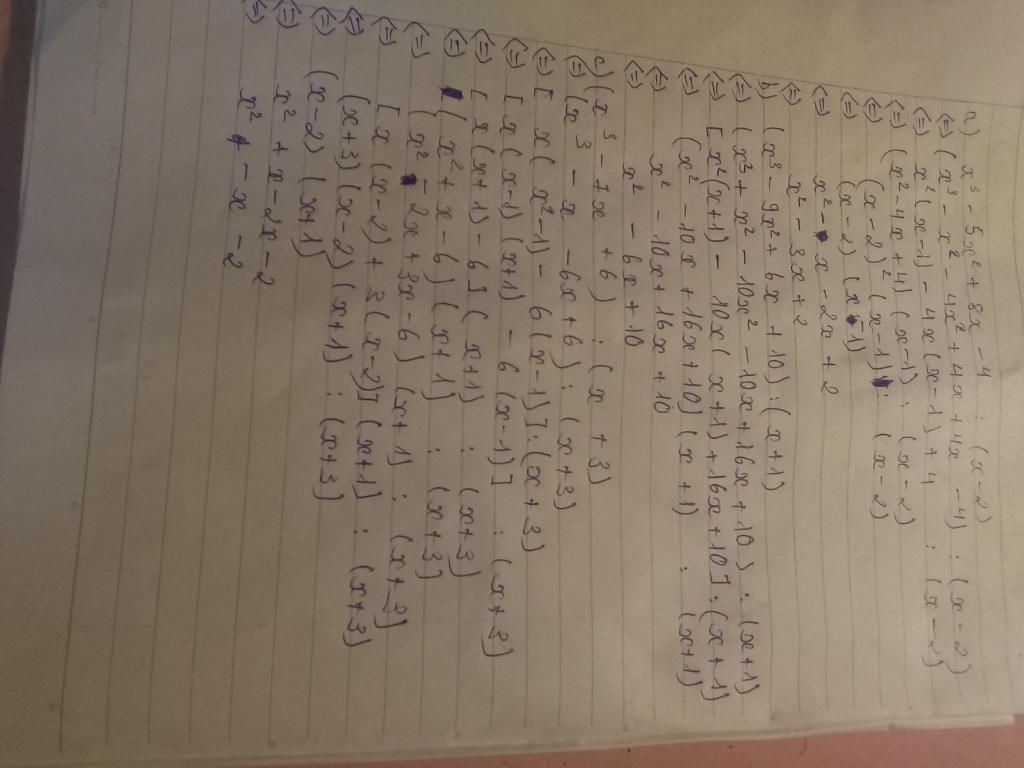 a) x³ - 5x² + 8x - 4 : (x - 2)
(=) (x³ - x² - 4x² + 4x + 4x - 4) : (x - 2)
(=) x² (x - 1) - 4x (x - 1) + 4 : (x - 2)
(=) (x² - 4x + 4) (x - 1) : (x - 2)
(=) (x - 2)² (x - 1) : (x - 2)
(=) (x - 2) (x - 1)
(=) x² - x - 2x + 2
(=) x² - 3x + 2
b) (x³ - 9x² + 6x + 10) : (x + 1)
(=) (x³ + x² - 10x² - 10x + 16x + 10) : (x + 1)
(=) [x² (x + 1) - 10x (x + 1) + 16x + 10] : (x + 1)
(=) (x² - 10x + 16x + 10) (x + 1) : (x + 1)
(=) x² - 10x + 16x + 10
(=) x² - 6x + 10
c) (x³ - 7x + 6) : (x + 3)
(=) (x³ - x - 6x + 6) : (x + 3)
(=) [x (x² - 1) - 6 (x - 1)] : (x + 3)
(=) [x (x - 1) (x + 1) - 6 (x - 1)] : (x + 3)
(=) [x (x + 1) - 6] (x + 1) : (x + 3)
(=) (x² + x - 6) (x + 1) : (x + 3)
(=) (x² - 2x + 3x - 6) (x + 1) : (x + 3)
(=) [x (x - 2) + 3 (x - 2)] (x + 1) : (x + 3)
(=) (x + 3) (x - 2) (x + 1) : (x + 3)
(=) (x - 2) (x + 1)
(=) x² + x - 2x - 2
(=) x² - x - 2